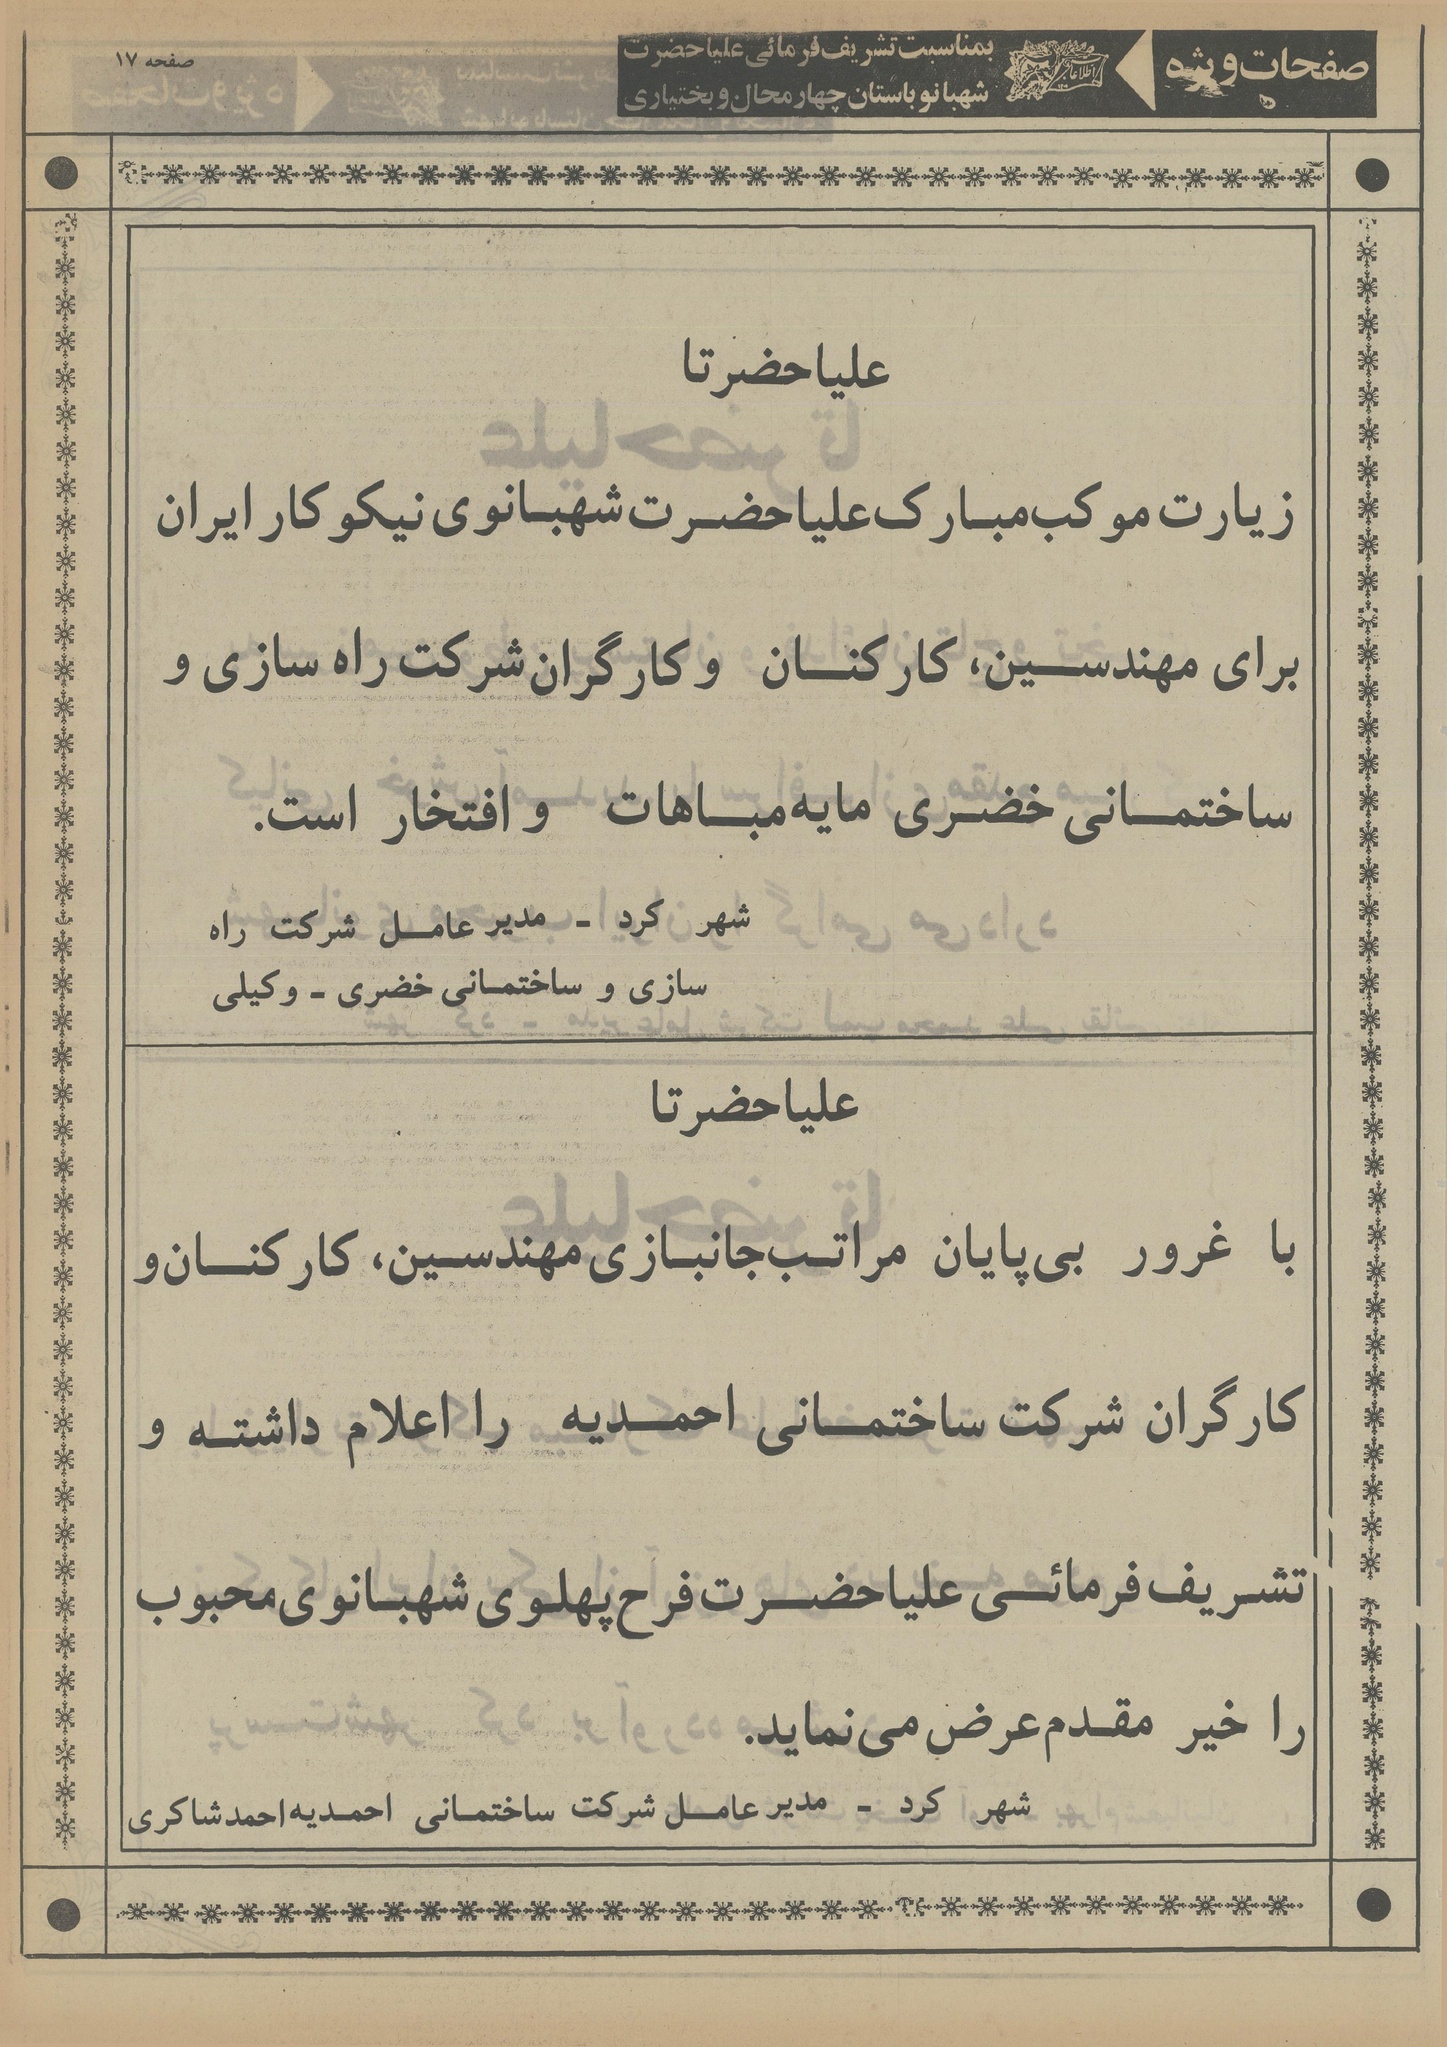 صفحات ویژه
اطلاعات
بمناسبت تشریف فرمائی علیاحضرت
شهبانو باستان چهارمحال و بختیاری
صفحه ۱۷
علیاحضرتا
زیارت موکب مبارک علیاحضرت شهبانوی نیکوکار ایران
برای مهندسین، کارکنان و کارگران شرکت راه سازی و
ساختمانی خضری مایه مباهات و افتخار است.
شهر کرد ـ مدیر عامل شرکت راه
سازی و ساختمانی خضری ـ وکیلی
علیاحضرتا
با غرور بی‌پایان مراتب جانبازی مهندسین، کارکنان و
کارگران شرکت ساختمانی احمدیه را اعلام داشته و
تشریف فرمائی علیاحضرت فرح پهلوی شهبانوی محبوب
را خیر مقدم عرض می‌نماید.
شهر کرد ـ مدیر عامل شرکت ساختمانی احمدیه احمد شاکری